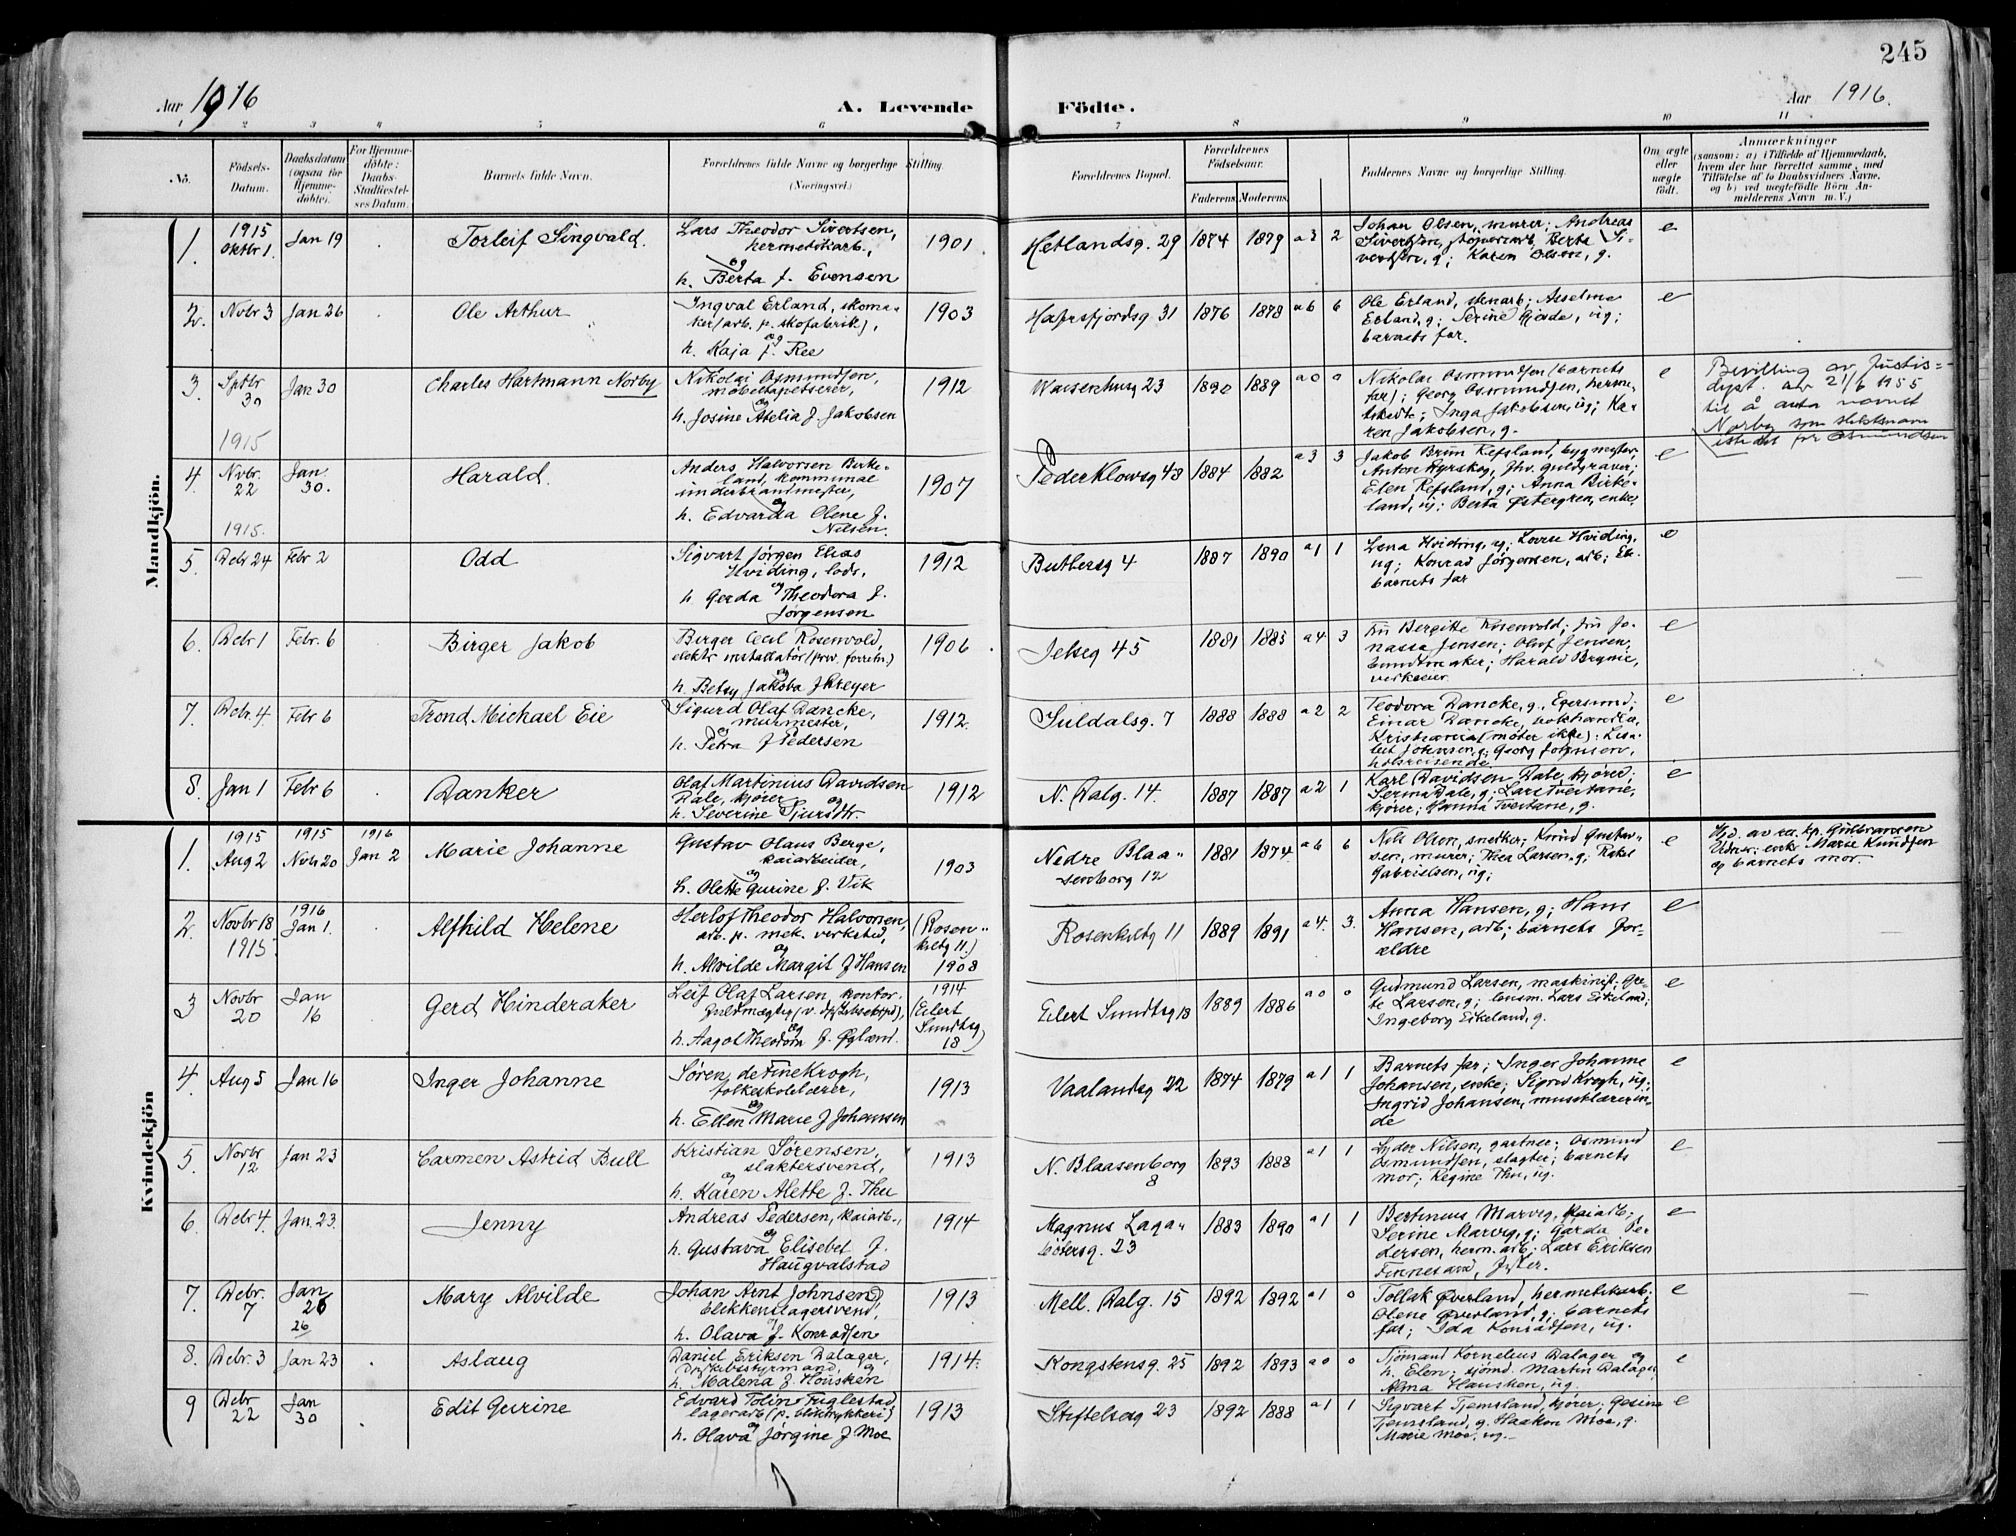 245
Aar 1916
A. Levende Födte.
Aar 1916.
1 2 3 4 5 6 7 8 9 10 11
No.
Födsels-Datum.
Daabsdatum (ogsaa for Hjemme-döbte).
For Hjemme-döbte: Daabs-Stadfæstel-ses Datum.
Barnets fulde Navn.
Forældrenes fulde Navne og borgerlige Stilling. (Næringsvei.)
Forældrenes Bopæl.
Forældrenes Födselsaar.
Faderens Moderens
Faddernes Navne og borgerlige Stilling.
Om ægte eller uægte födt.
Anmærkninger
(saasom: a) i Tilfælde af Hjemmedaab,
hvem der har forrettet samme, med
Tilföielse af to Daabsvidners Navne,
og b) ved uægtefödte Börn An-
melderens Navn m.V.)
Mandkjön.
1. 1915 Oktbr 1. Jan 19 Torleif Singvald. Lars Theodor Sivertsen, hermetikarb., og h. Berta f. Evensen 1901. Hetlandsg. 29 1874 1879 a 3 2 Johan Olsen, murer; Andreas Sivertsen, Berta Si-vertsen, g; Karen Olsen, g. e
2. Novbr 3 Jan 26 Ole Arthur Ingval Erland, skoma-ker (arb. p. skofabrik), og h. Kaja f. Ree 1903 Hafrsfjordsg. 31 1876 1878 a 6 6 Ole Erland, stenarb; Asselme Erland, g; Serine Gjerde, ug; barnets far. e
3. Sptbr 30 1915 Jan 30 Charles Hartmann Norby Nikolai Osmundsen, møbeltapetserer, og h. Josine Atelia f. Jakobsen 1912 Waisenhusg 23 1890 1889 a 0 0 Nikolai Osmundsen (barnets far); Georg Osmundsen, Inga Jakobsen, ug; Ka-ren Jakobsen, g. e Bevilling av Justis-dpt. av 21/6 1955 til å anta navnet Norby som slektsnavn istedet for Osmundsen
4. Novbr. 22 1915. Jan. 30. Harald. Anders Halvorsen Birke-land, kommunal underbrandmester, og h. Edvarda Olene f. Nilsen. 1907 Peder Klowsg 48 1884 1882 a 3 3 Jakob Brun Refsland, bygmester; Anton Myrskog, fhv. guldgraver; Elen Refsland, g; Anna Birke-land, ug; Berta Østergren, enke, e
5. Debr 24 Febr 2 Odd Sigvart Jørgen Elias Hviding, lods, og h. Gerda Theodora f. Jørgensen 1912 Butbersg 4 1887 1890 a 1 1 Lena Hviding, ug; Lovise Hviding, ug; Konrad Jørgensen, arb; barnets far e
6. Debr 1 Febr. 6 Birger Jakob Birger Cecil Rosenvold, elektr installatør (priv. forretn.) og h. Betsy Jakoba f Kreyer 1906 Jelseg 45 1881 1885 a 4 3 Fru Bergitte Rosenvold; fru Jo-nassa Jensen; Olaf Jensen, buntmaker; Harald Bryne, verkseier. e
7. Debr. 4. Febr 6 Trond Michael Eie Sigurd Olaf Dancke, murmester, og h. Petra f Pedersen 1912. Suldalsg. 7 1888 1888 a 2 2 Teodora Dancke, g., Egersund; Einar Dancke, bokhandler, Kristiania (møter ikke); Lisa-bet Johnsen, g; Georg Johnsen, hdlsreisende e
8. Jan 1 Febr 6 Danker Olaf Martinius Davidsen Dale, kjører og h. Severine Sjursdtr. 1912 N. Dalg. 14. 1887 1887 a 2 1 Karl Davidsen Dale, kjører; Serina Dale, g; Lars Tveitane, kjører; Hanna Tveitane, g. e
Kvindekjön
1. 1915 Aug 2 1915 Novbr 20 1916 Jan 2 Marie Johanne Gustav Olaus Berge, kaiarbeider, og h. Olette Gurine f. Vik 1903 Nedre Blaa-senborg 12 1881 1874 a 6 6 Nils Olsen, snedker; Knud Gustav-sen, murer; Thea Larsen, g; Rakel Gabrielsen, ug; e Hjd. av res. kp. Gulbransen Vidner: enke Marie Knudsen og barnets mor.
2. Novbr 18 1915. 1916 Jan 1. Alfhild Helene Herlof Theodor Halvorsen, arb. p. mek. verksted, og h. Alvilde Margit f Hansen (Rosen-kiltg 11) 1908 Rosenkiltg 11 1889 1891 a 4. 3. Anna Hansen, g; Hans Hansen, arb; barnets for-ældre e
3 Novbr 20 Jan 16 Gerd Hinderaker Leif Olaf Larsen, kontor-fuldmægtig og h. Aagot Theodora f. Øgland. 1914 (Eilert Sundtsg 18) Eilert Sundtsg 18 1889 1886 a 0 0 Gudmund Larsen, maskinist; Gre-te Larsen, g; lensm. Lars Eikeland; Ingeborg Eikeland, g. e
4. Aug 5 Jan 16 Inger Johanne Søren de Fine Krogh, folkeskolelærer, og h. Ellen Marie f Johansen 1913 Vaalandsg 22 1874 1879 a 1 1 Barnets far; Inger Johanne Johansen, enke; Sigrid Krogh, ug; Ingrid Johansen, musiklærerin-de e
5. Novbr 12 Jan 23 Carmen Astrid Bull Kristian Sørensen, slaktersvend, og h. Karen Alette f. Thu 1913 N. Blaasenborg 8 1893 1888 a 1 1 Lyder Nilsen, gartner; Osmund Osmundsen, slagter; barnets mor; Regine Thu, ug. e
6. Debr 4. Jan. 23. Jenny Andreas Pedersen, kaiarb., og h. Gustava Elisebet f. Haugvalstad 1914 Magnus Laga-bøtersg. 23 1883 1890 a 1 1 Bertinius Marvig, kaiarb; Serine Marvig, g; Gerda Pe-dersen, herm.arb; Lars Eriksen Finnesand, fisker. e
7. Debr. 7 Jan 26 26 Mary Alvilde Johan Arnt Johnsen, blikkenslagersvend, og h. Olava f. Konradsen 1913 Mell. Dalg. 15 1892 1892 a 1 0 Tollak Øverland, hermetikarb. Olene Øverland, g; barnets far; Ida Konradsen, ug. e
8. Debr. 3 Jan 23 Aslaug Daniel Eriksen Dalager, Dpskibsstyrmand, og h. Malena f. Housken 1914. Kongstensg. 25 1892 1893 a 0 0 Sjömand Kornelius Dalager og h. Elen; sjömd. Martin Dalager, Alma Hausken, ug. e
9 Debr 22 Jan 30 Edit Gurine Edvard Tolin Fuglestad, lagerarb (p. bliktrykkeri) og h. Olava Jørgine f Moe 1913 Stiftelsesg 23 1892 1888 a 1 1 Sigvart Tjemsland, kjører; Gesina Tjemsland, g. Haakon Moe, g. Marie Moe, ug. e